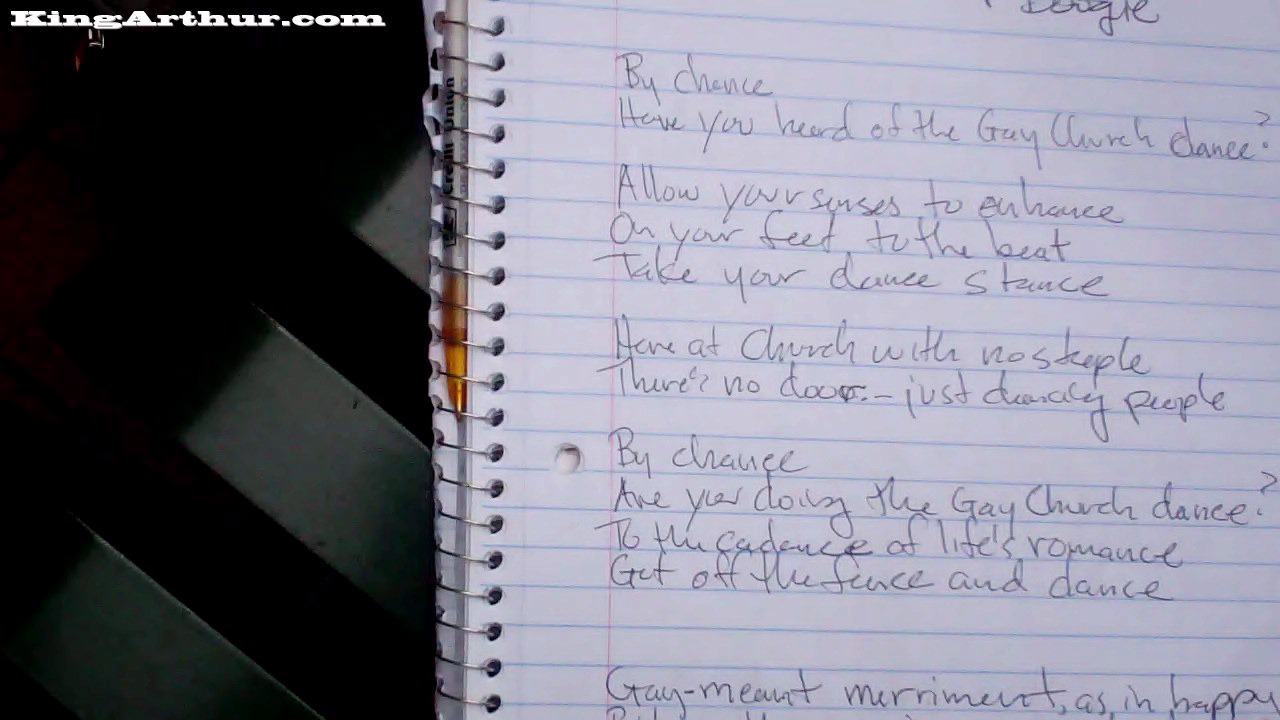 KingArthur.com
Boogie
By chance
Have you heard of the Gay Church dance?
Allow your senses to enhance
On your feet, to the beat
Take your dance stance
Here at Church with no steeple
There's no door - just dancing people
By chance
Are you doing the Gay Church dance?
To the cadence of life's romance
Get off the fence and dance
Gay-meant merriment, as in happy